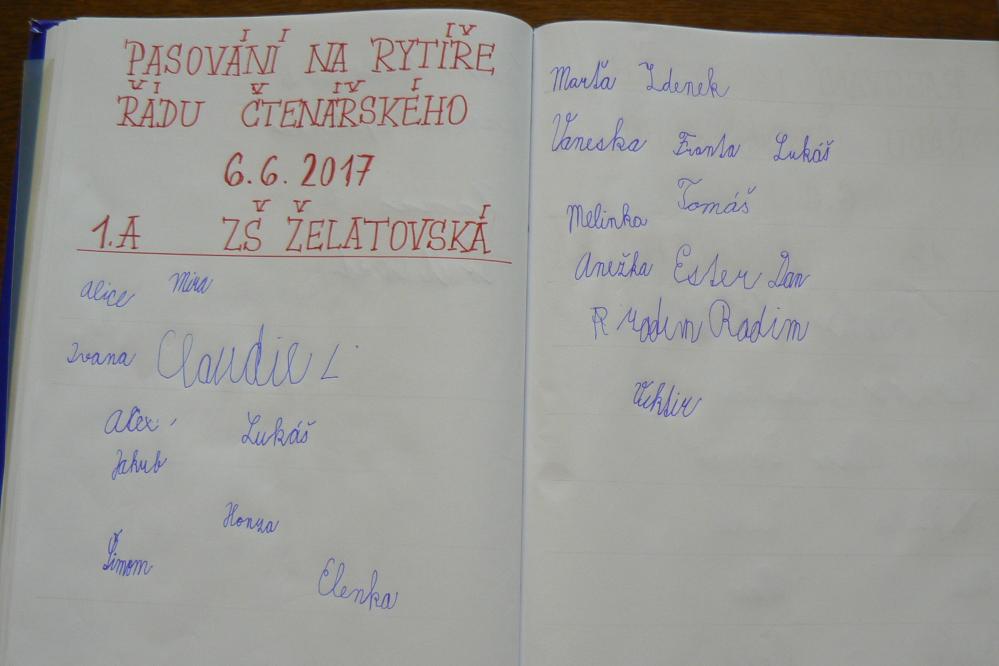 PASOVÁNÍ NA RYTÍŘE
ŘÁDU ČTENÁŘSKÉHO
6.6.2017
1.A ZŠ ŽELATOVSKÁ
Alice Mira
Ivana Claudie L
Alex
Lukáš
Jakub
Honza
Šimom
Elenka
Marťa Zdenek
Vaneska Franta Lukáš
Tomáš
Melinka
Anežka Ester Dan
R Radim Radim